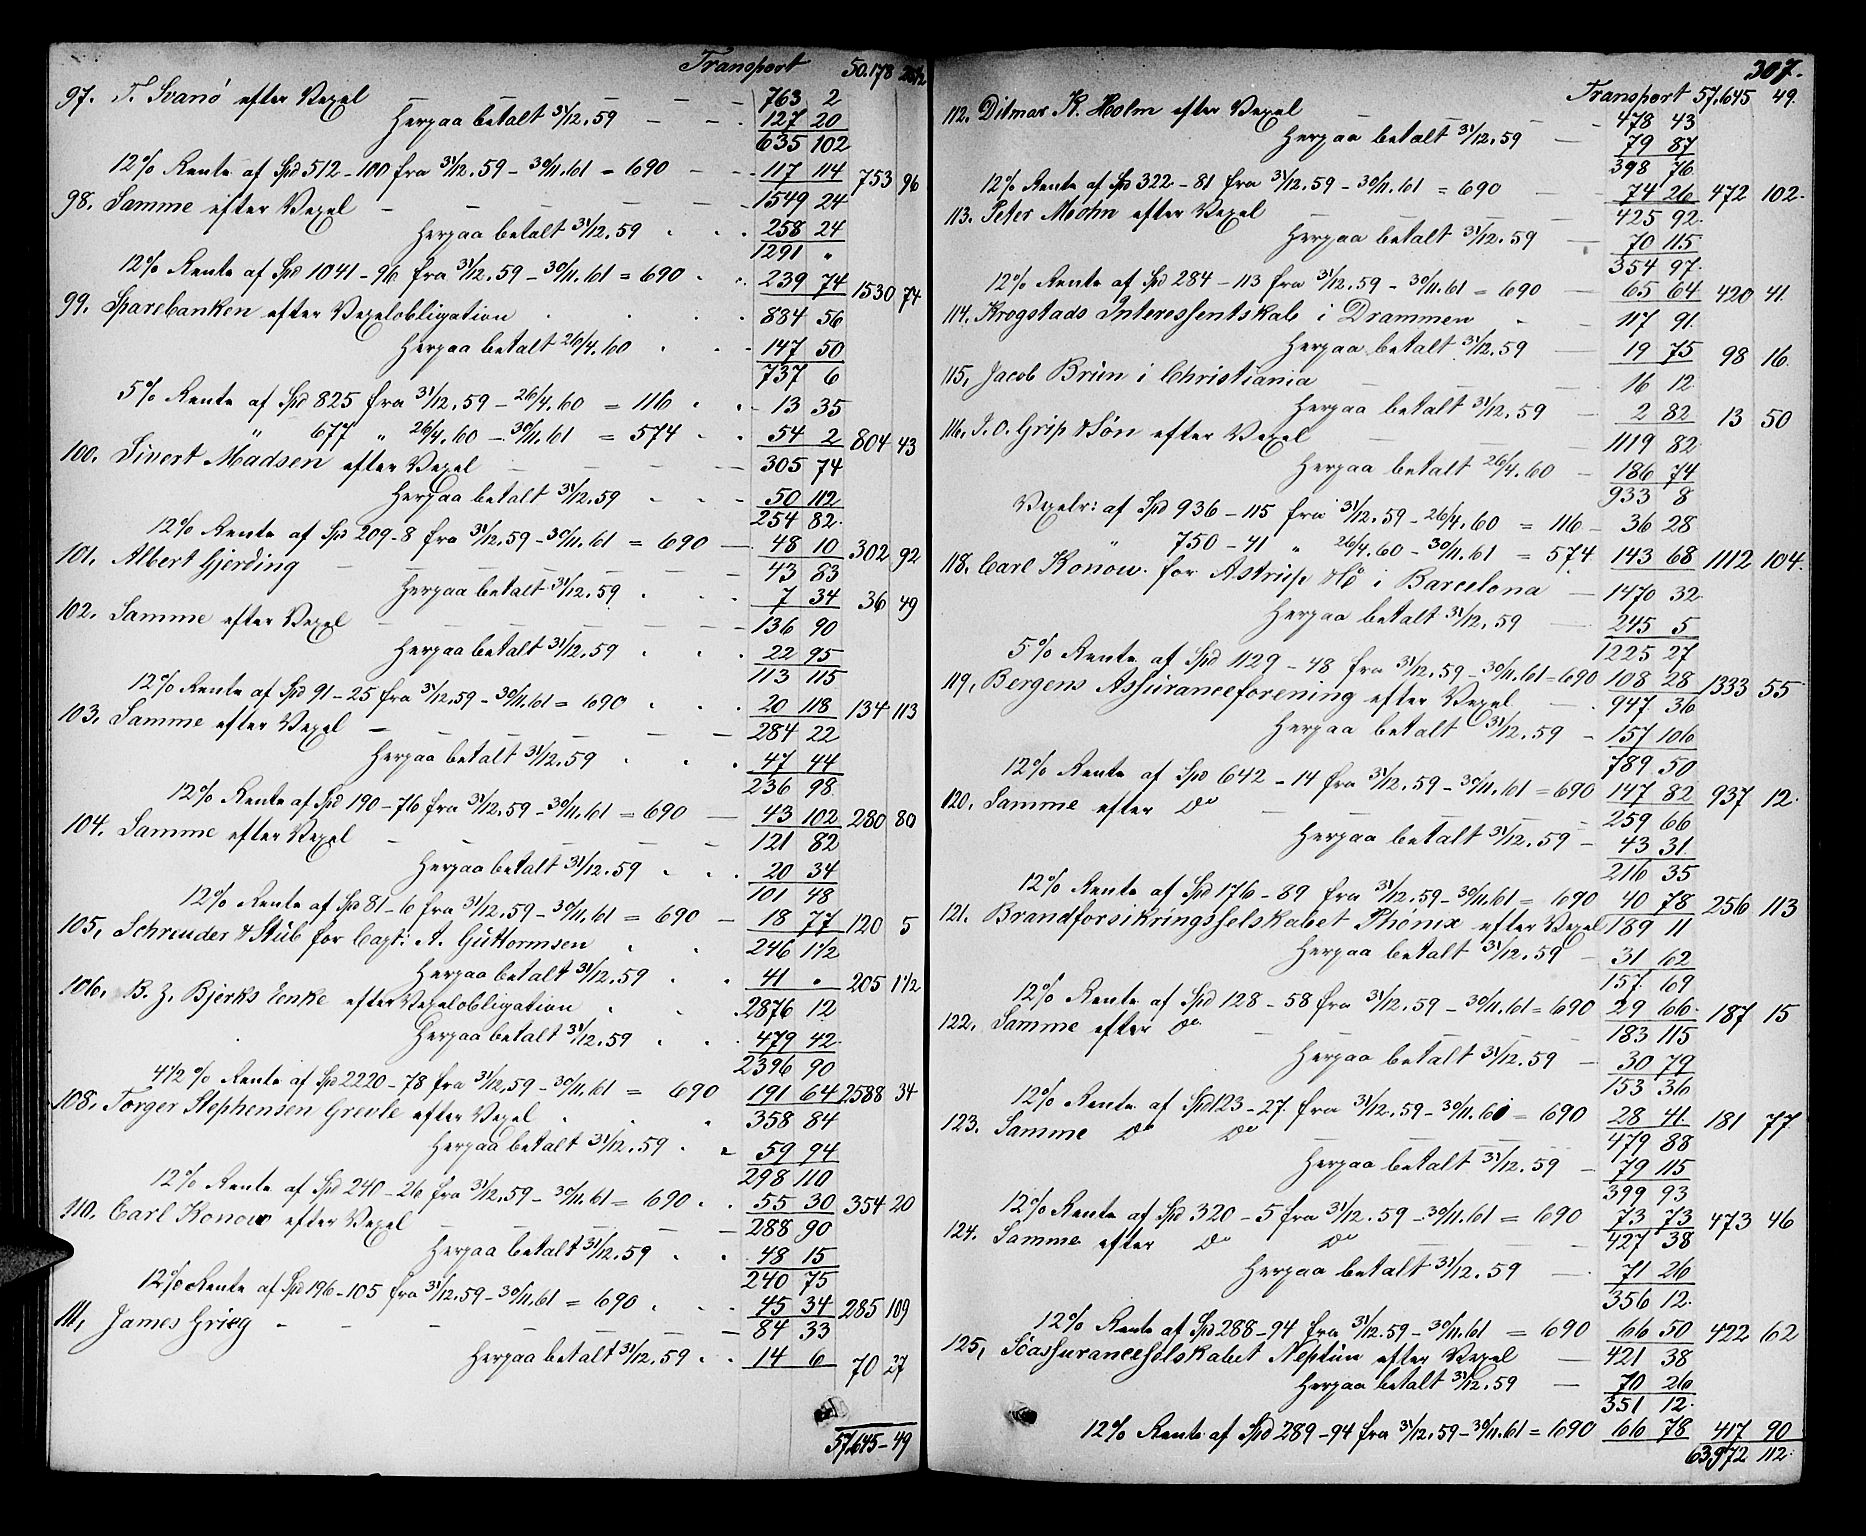 Transport 50.178
97. T. Svanö efter Vexel — — — 763 2
Herpaa betalt 31/12.59 — — 127 20
635 102
12% Rente af Spd 512 - 100 fra 31/12.59 - 30/11.61 = 690 — — 117 114 753 96
98. Samme efter Vexel — — — — 1549 24
Herpaa betalt 31/12.59 . . . 258 24
1291 "
12% Rente af Spd 1041 - 96 fra 31/12.59 - 30/11.61 = 690 . . 239 74 1530 74
99. Sparebanken efter Vexelobligation . . . 884 56
Herpaa betalt 26/4.60 . . . 147 50
737 6
5% Rente af Spd 825 fra 31/12.59 - 26/4.60 = 116 . . 13 35
" 677 " 26/4.60 - 30/11.61 = 574 . . 54 2 804 43
100. Sivert Madsen efter Vexel — — — — 305 74
Herpaa betalt 31/12.59 . . . 50 112
254 82
12% Rente af Spd 209 - 8 fra 31/12.59 - 30/11.61 = 690 — 48 10 302 92
101. Albert Gjerding — — — — 43 83
Herpaa betalt 31/12.59 . . . 7 34 36 49
102. Samme efter Vexel — — — — 136 90
Herpaa betalt 31/12.59 . . . 22 95
113 115
12% Rente af Spd 91 - 25 fra 31/12.59 - 30/11.61 = 690 . . . 20 118 134 113
103. Samme efter Vexel — — — — 284 22
Herpaa betalt 31/12.59 . . . 47 44
236 98
12% Rente af Spd 190 - 76 fra 31/12.59 - 30/11.61 = 690 — 43 102 280 80
104. Samme efter Vexel — — — — 121 82
Herpaa betalt 31/12.59 . . . 20 34
101 48
12% Rente af Spd 81 - 6 fra 31/12.59 - 30/11.61 = 690 — 18 77 120 5
105, Schreuder & Stub for Capt: A. Guttormsen . . 246 1 1/2
Herpaa betalt 31/12.59 . . 41 " 205 1 1/2
106. B. Z. Bjerks Enke efter Vexelobligation . . . 2876 12
Herpaa betalt 31/12.59 . . . 479 42
2396 90
4 1/2 % Rente af Spd 2220 - 78 fra 31/12.59 - 30/11.61 = 690 191 64 2588 34
108. Torger Stephensen Grevle efter Vexel . . . 358 84
Herpaa betalt 31/12.59 . . 59 94
298 110
12% Rente af Spd 240 - 26 fra 31/12.59 - 30/11.61 = 690 . . 55 30 354 20
110. Carl Konow efter Vexel — — — 288 90
Herpaa betalt 31/12.59 . . 48 15
240 75
12% Rente af Spd 196 - 105 fra 31/12.59 - 30/11.61 = 690 . . . 45 34 285 109
111, James Grieg — — — — 84 33
Herpaa betalt 31/12.59 . . 14 6 70 27
57,645 - 49
307.
Transport 57,645 49.
112. Ditmar K. Holm efter Vexel — — 478 43
Herpaa betalt 31/12.59 — 79 87
398 76
12% Rente af Spd 322 - 81 fra 31/12.59 - 30/11.61 = 690 — 74 26 472 102
113. Peter Mohn efter Vexel — — 425 92
Herpaa betalt 31/12.59 — 70 115
354 97
12% Rente af Spd 284 - 113 fra 31/12.59 - 30/11.61 = 690 — 65 64 420 41
114. Krogstads Interessentskab i Drammen — — 117 91
Herpaa betalt 31/12.59 — 19 75 98 16
115, Jacob Brun i Christiania — — 16 12
Herpaa betalt 31/12.59 — 2 82 13 50
116. J. O. Grip & Søn efter Vexel — — 1119 82
Herpaa betalt 26/4.60 — 186 74
933 8
Vexelr: af Spd 936 - 115 fra 31/12.59 - 26/4.60 = 116 — 36 28
750 - 41 " 26/4.60 - 30/11.61 = 574 143 68 1112 104
118. Carl Konow for Astrup & Co i Barcelona — 1470 32
Herpaa betalt 31/12.59 — 245 5
1225 27
5% Rente af Spd 1129 - 48 fra 31/12.59 - 30/11.61 = 690 108 28 1333 55
119, Bergens Assuranceforening efter Vexel — 947 36
Herpaa betalt 31/12.59 — 157 106
789 50
12% Rente af Spd 642 - 14 fra 31/12.59 - 30/11.61 = 690 147 82 937 12
120. Samme efter Do — — 259 66
Herpaa betalt 31/12.59 — 43 31
216 35
12% Rente af Spd 176 - 89 fra 31/12.59 - 30/11.61 = 690 40 78 256 113
121. Brandforsikringsselskabet Phönix efter Vexel 189 11
Herpaa betalt 31/12.59 — 31 62
157 69
12% Rente af Spd 128 - 58 fra 31/12.59 - 30/11.61 = 690 29 66 187 15
122. Samme efter Do — — 183 115
Herpaa betalt 31/12.59 — 30 79
153 36
12% Rente af Spd 123 - 27 fra 31/12.59 - 30/11.61 = 690 28 41 181 77
123. Samme Do Do — — 479 88
Herpaa betalt 31/12.59 — 79 115
399 93
12% Rente af Spd 320 - 5 fra 31/12.59 - 30/11.61 = 690 73 73 473 46
124. Samme efter Do Do — — 427 38
Herpaa betalt 31/12.59 — 71 26
356 12
12% Rente af Spd 288 - 94 fra 31/12.59 - 30/11.61 = 690 66 50 422 62
125, Söassuranceselskabet Neptun efter Vexel — 421 38
Herpaa betalt 31/12.59 — 70 26
351 12
12% Rente af Spd 289 - 94 fra 31/12.59 - 30/11.61 = 690 66 78 417 90
63,972 112